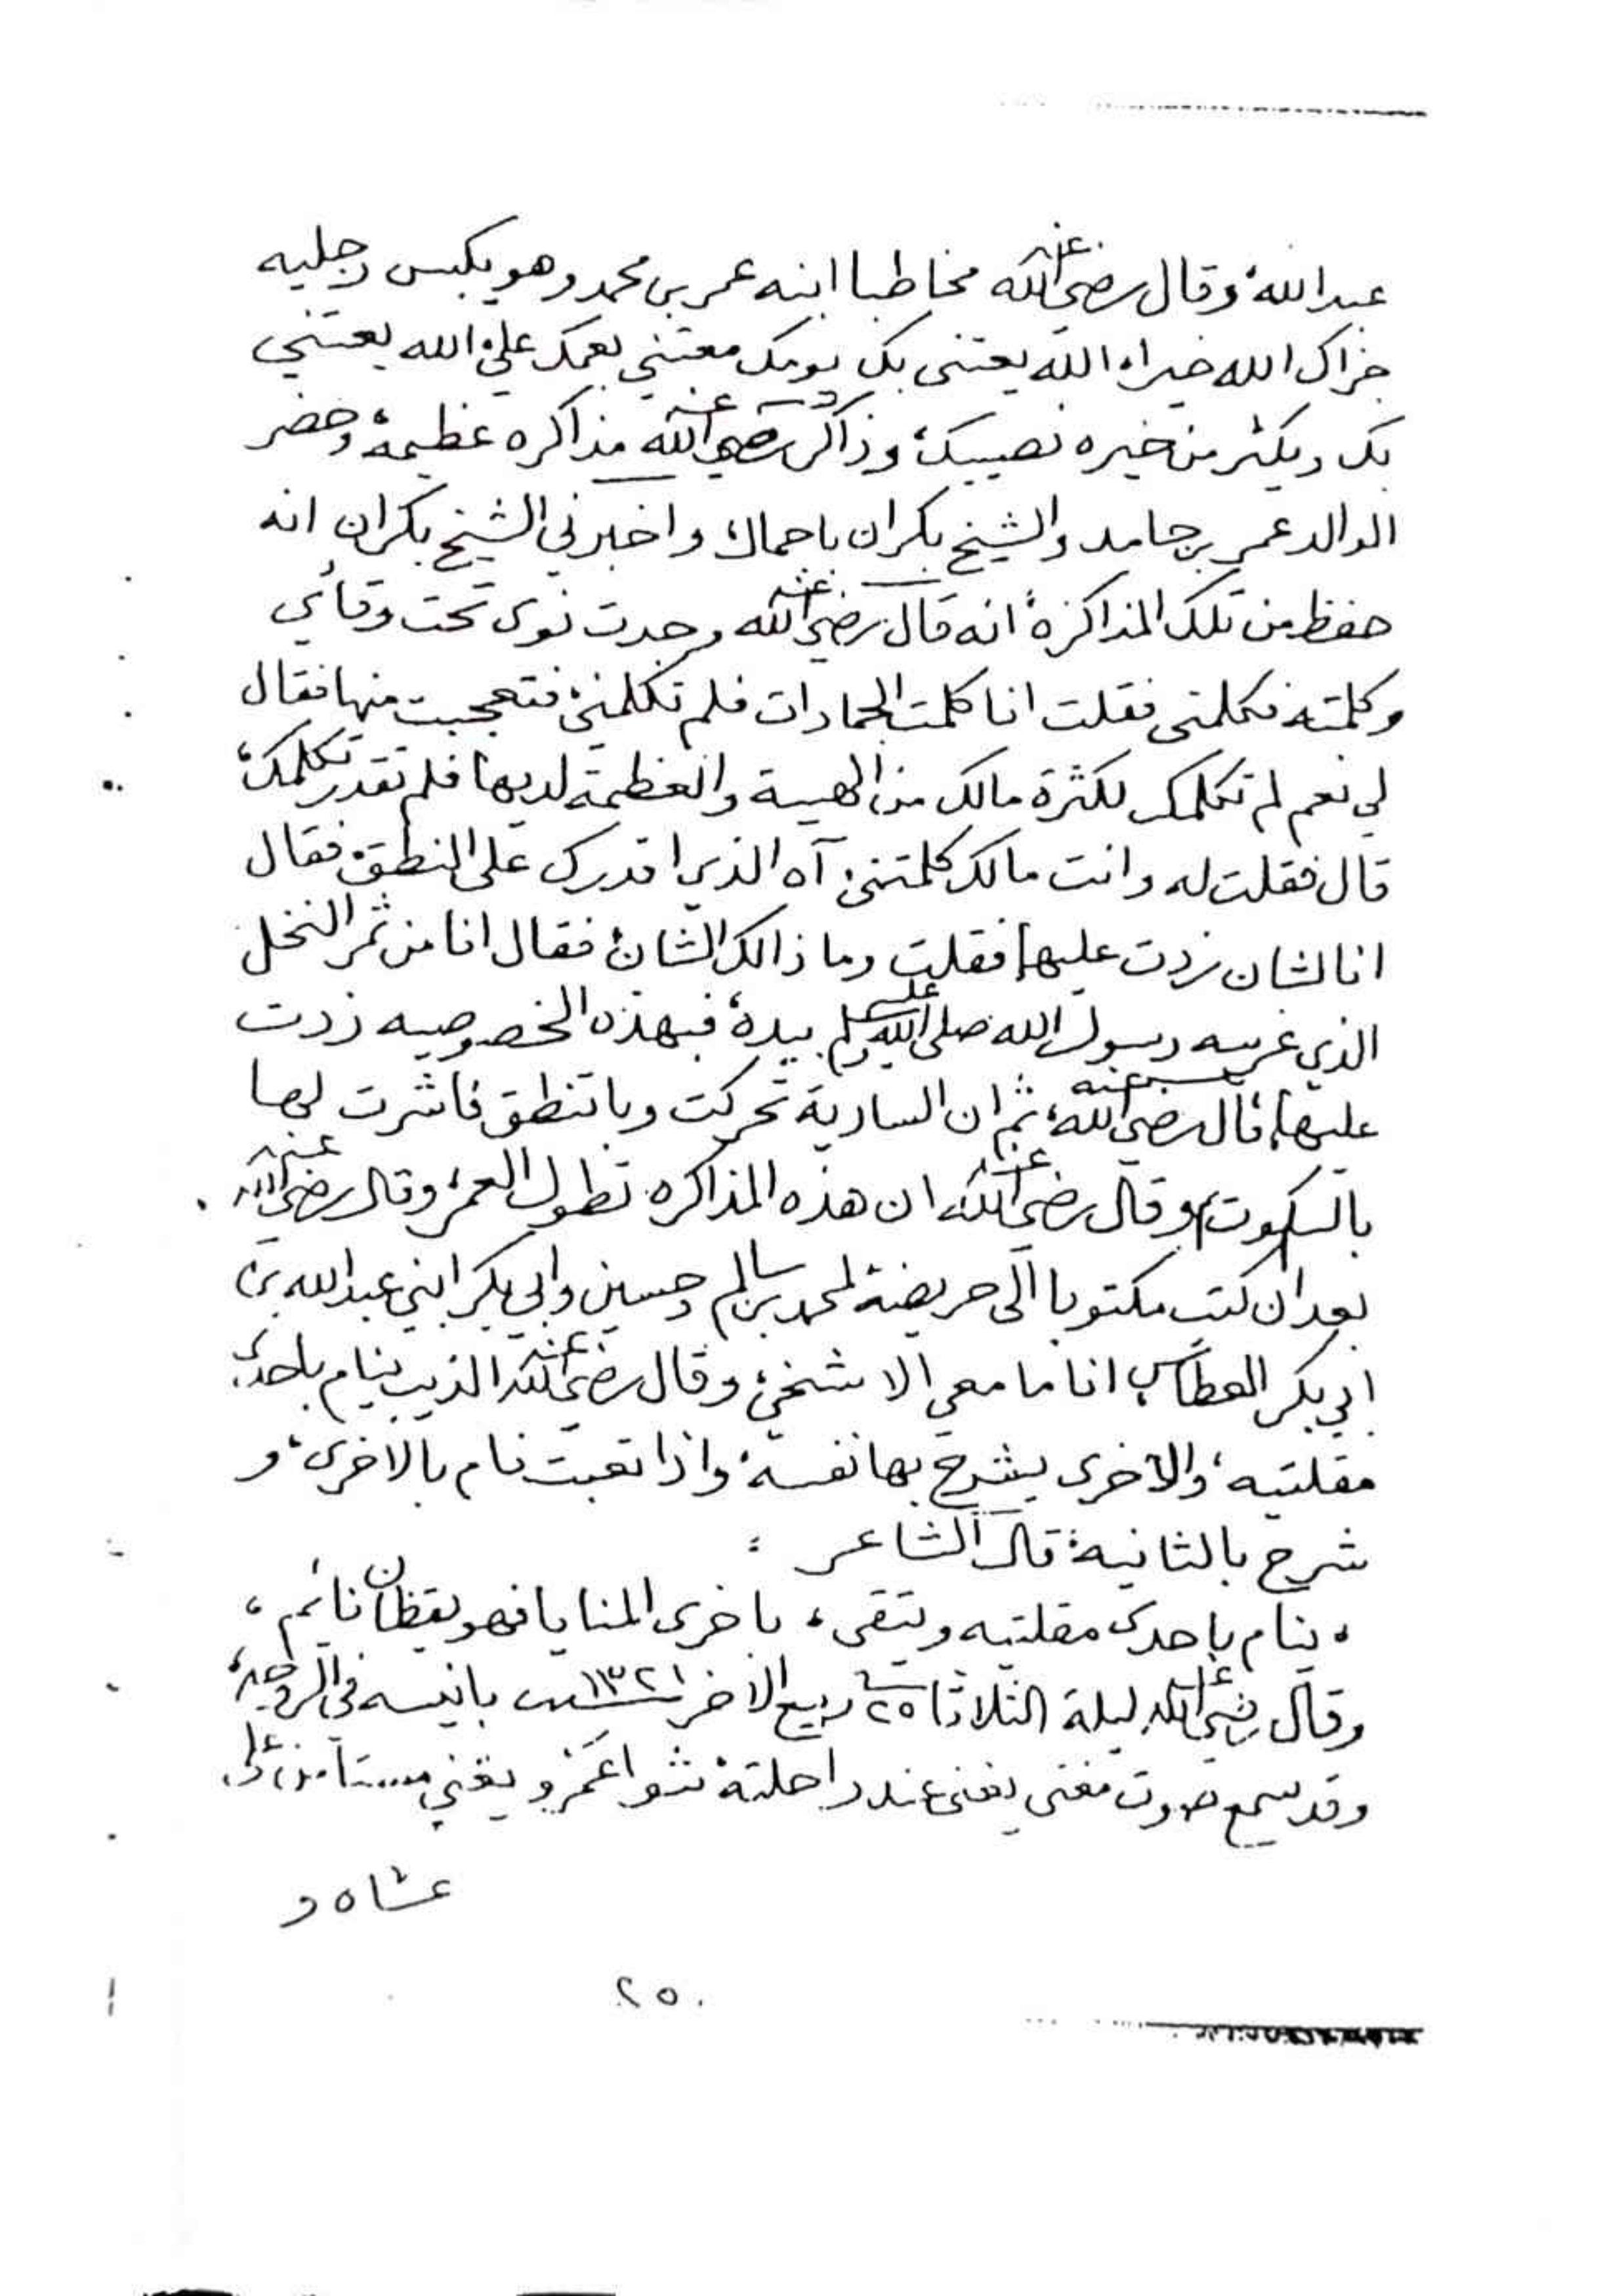 عبدالله، وقال رضي الله عنه مخاطبا ابنه عمر بن محمد وهو يكبس رجليه
جزاك الله خيرا، الله يعتني بك يومك معتني بعمك علي، الله يعتني
بك ويكثر من خيره نصيبك، وذاكر رضي الله عنه مذاكره عظيمة، وحضر
الوالد عمر بن حامد والشيخ بكران باجمال، واخبرني الشيخ بكران انه
حفظ من تلك المذاكرة، انه قال رضي الله عنه وجدت نوى تحت وقائي
وكلمته فكلمني فقلت انا كلمت الجمادات فلم تكلمني، فتعجبت منها فقال
لي نعم لم تكلمك لكثرة مالك من الهيبة والعظمة لديها فلم تقدر تكلمك،
قال فقلت له وانت مالك كلمتني، آه الذي اقدرك على النطق، فقال
انا لشان زدت عليها، فقلت وما ذالك الشان، فقال انا من ثمر النخل
الذي غرسه رسول الله صلى الله عليه وسلم بيده، فبهذه الخصوصيه زدت
عليها، قال رضي الله عنه، ثم ان السارية تحركت وبا تنطق فاشرت لها
بالسكوت، وقال رضي الله عنه ان هذه المذاكره تطول العمر، وقال رضي الله عنه
بعد ان كتب مكتوبا الى حريضة لمحمد بن سالم وحسين وابي بكر ابني عبدالله بن
ابي بكر العطاس، انا ما معي الا شخي، وقال رضي الله عنه الذيب ينام باحدى
مقلتيه، والأخرى يشرح بها نفسه، واذا تعبت نام بالاخرى، و
شرح بالثانية، قال الشاعر :
، ينام باحدى مقلتيه ويتقي ، باخرى المنايا فهو يقظان نائم ،
وقال رضي الله عنه ليلة الثلاثا ٢٥ ربيع الاخر سنة ١٣٢١ بانيسه في
وقد سمع صوت مغني يغني عند راحلته ويغني
عشاه و
٢٥٠